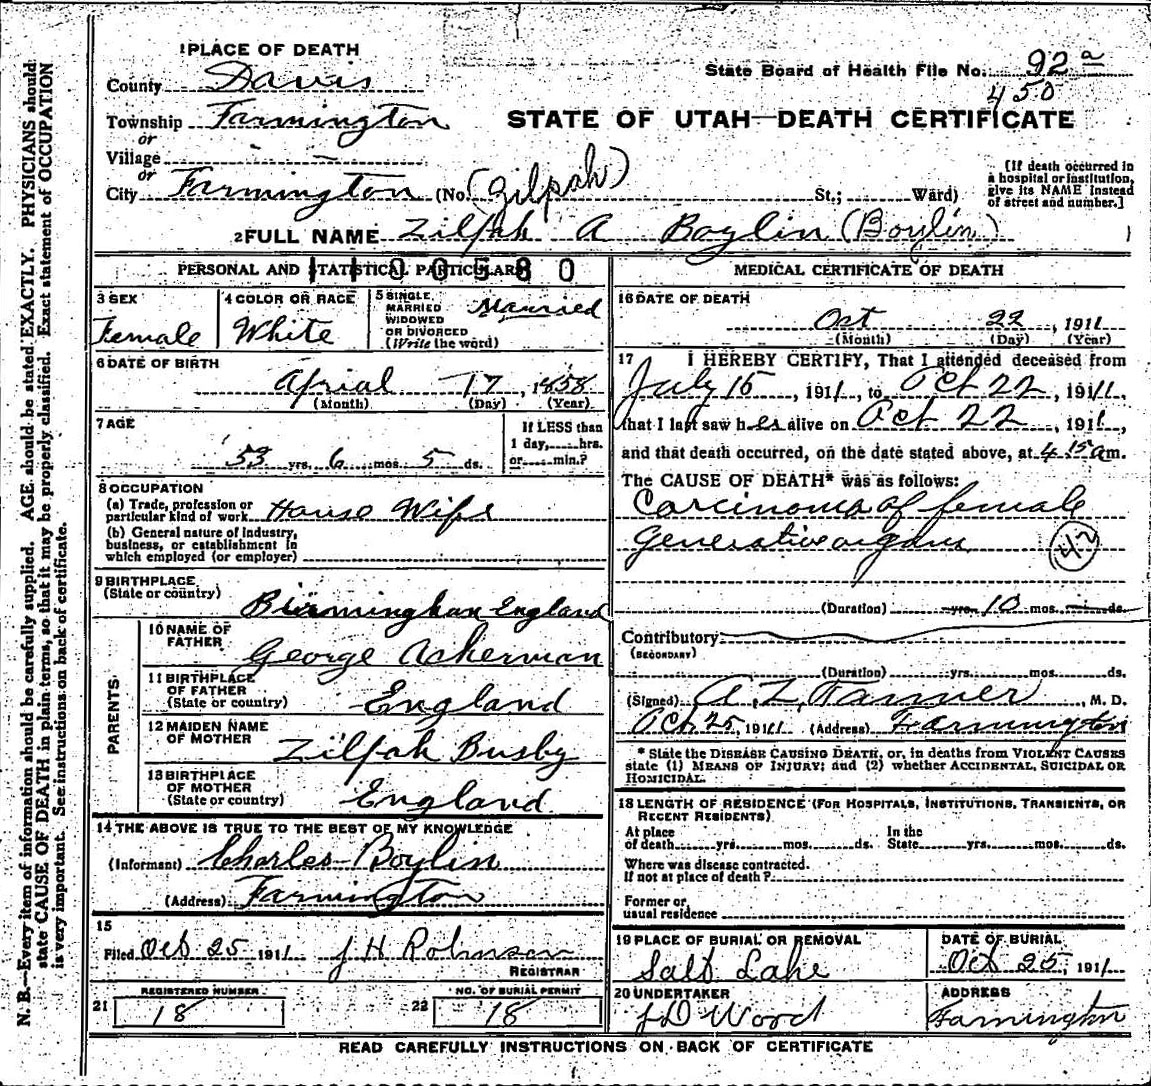 1 PLACE OF DEATH
County Davis
Township Farmington
or
Village -- --
or
City Farmington (No. (Zilpah) St.; Ward)
State Board of Health File No. 92 a
450
STATE OF UTAH—DEATH CERTIFICATE
[If death occurred in
a hospital or institution,
give its NAME instead
of street and number.]
2 FULL NAME Zilpah A Boylin (Boylin)
PERSONAL AND STATISTICAL PARTICULARS
1100580
3 SEX
Female
4 COLOR OR RACE
White
5 SINGLE,
MARRIED
WIDOWED
OR DIVORCED
(Write the word)
Married
6 DATE OF BIRTH
Aprial 17, 1858
(Month) (Day) (Year)
7 AGE
53 yrs. 6 mos. 5 ds.
If LESS than
1 day, hrs.
or min.?
8 OCCUPATION
(a) Trade, profession or
particular kind of work House Wife
(b) General nature of industry,
business, or establishment in
which employed (or employer)
9 BIRTHPLACE
(State or country)
Birmingham England
PARENTS
10 NAME OF
FATHER
George Ackerman
11 BIRTHPLACE
OF FATHER
(State or country)
England
12 MAIDEN NAME
OF MOTHER
Zilpah Busby
13 BIRTHPLACE
OF MOTHER
(State or country)
England
14 THE ABOVE IS TRUE TO THE BEST OF MY KNOWLEDGE
(Informant) Charles Boylin
(Address) Farmington
15
Filed Oct 25 1911 J H Robinson
REGISTRAR
REGISTERED NUMBER
21 18
NO. OF BURIAL PERMIT
22 18
MEDICAL CERTIFICATE OF DEATH
16 DATE OF DEATH
Oct 22, 1911
(Month) (Day) (Year)
17 I HEREBY CERTIFY, That I attended deceased from
July 15, 1911, to Oct 22, 1911,
that I last saw her alive on Oct 22, 1911,
and that death occurred, on the date stated above, at 4 15 am.
The CAUSE OF DEATH* was as follows:
Carcinoma of female
Generative organs
42
(Duration) yrs. 10 mos. ds.
Contributory
(SECONDARY)
(Duration) yrs. mos. ds.
(Signed) A. Z. Tanner, M. D.
Oct. 25, 1911 (Address) Farmington
* State the DISEASE CAUSING DEATH, or, in deaths from VIOLENT CAUSES
state (1) MEANS OF INJURY; and (2) whether ACCIDENTAL, SUICIDAL OR
HOMICIDAL.
18 LENGTH OF RESIDENCE (FOR HOSPITALS, INSTITUTIONS, TRANSIENTS, OR
RECENT RESIDENTS)
At place
of death yrs. mos. ds.
In the
State yrs. mos. ds.
Where was disease contracted.
If not at place of death ?
Former or
usual residence
19 PLACE OF BURIAL OR REMOVAL
Salt Lake
DATE OF BURIAL
Oct 25, 1911
20 UNDERTAKER
J D Wood
ADDRESS
Farmington
READ CAREFULLY INSTRUCTIONS ON BACK OF CERTIFICATE
N. B.—Every item of information should be carefully supplied. AGE should be stated EXACTLY. PHYSICIANS should
state CAUSE OF DEATH in plain terms, so that it may be properly classified. Exact statement of OCCUPATION
is very important. See instructions on back of certificate.